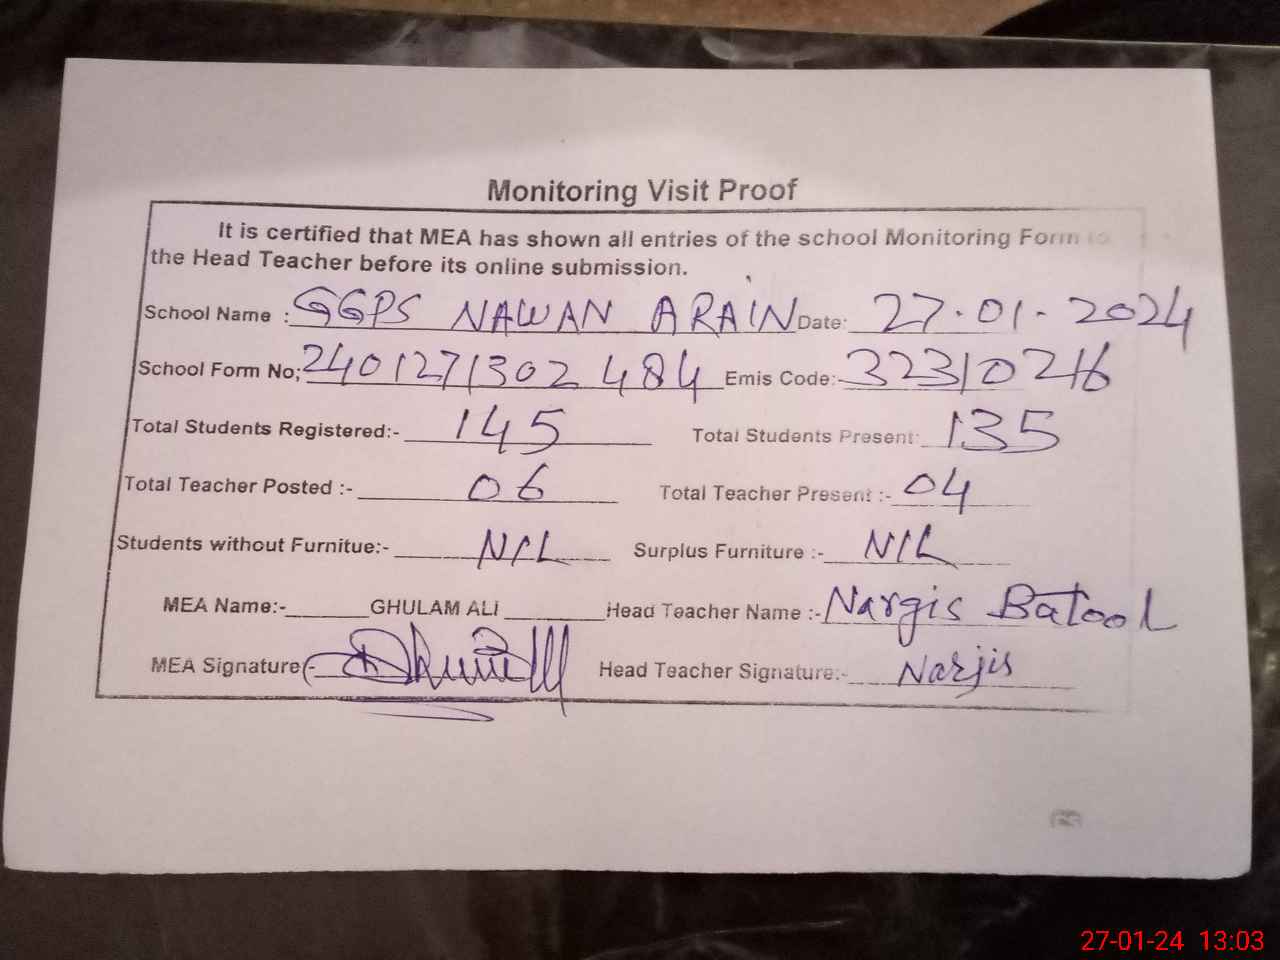 Monitoring Visit Proof
It is certified that MEA has shown all entries of the school Monitoring Form to
the Head Teacher before its online submission.
School Name : GGPS NAWAN ARAIN Date: 27.01.2024
School Form No; 2401271302484 Emis Code:- 32310216
Total Students Registered:- 145 Total Students Present: 135
Total Teacher Posted :- 06 Total Teacher Present :- 04
Students without Furnitue:- NIL Surplus Furniture :- NIL
MEA Name:- GHULAM ALI Head Teacher Name :- Nargis Batool
MEA Signature:- Head Teacher Signature:- Narjis
CS
27-01-24 13:03